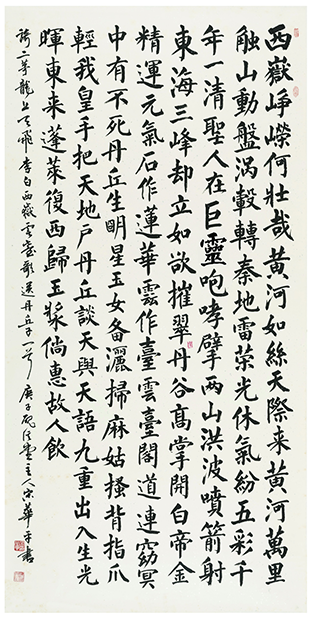 西嶽崢嶸何壯哉黄河如絲天際来黄河萬里
觸山動盤渦轂轉秦地雷榮光休氣紛五彩千
年一清聖人在巨靈咆哮擘兩山洪波噴箭射
東海三峰却立如欲摧翠丹谷高掌開白帝金
精運元氣石作蓮華雲作臺雲臺閣道連窈冥
中有不死丹丘生明星玉女备灑掃麻姑搔背指爪
輕我皇手把天地户丹丘談天與天語九重出入生光
暉東来蓬萊復西歸玉漿倘惠故人飲
騎二茅龍上天飛 李白西嶽雲臺歌送丹丘子一首 庚子 主人宋華平書